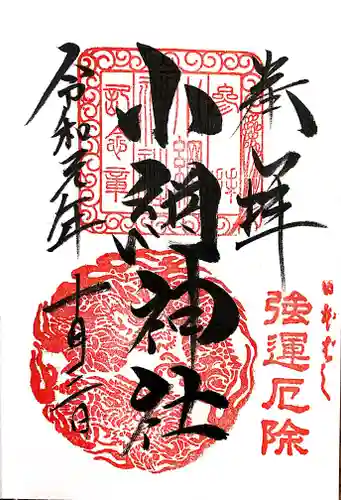 奉拝
日本ばし
強運厄除
小網神社
令和元年
十月二日